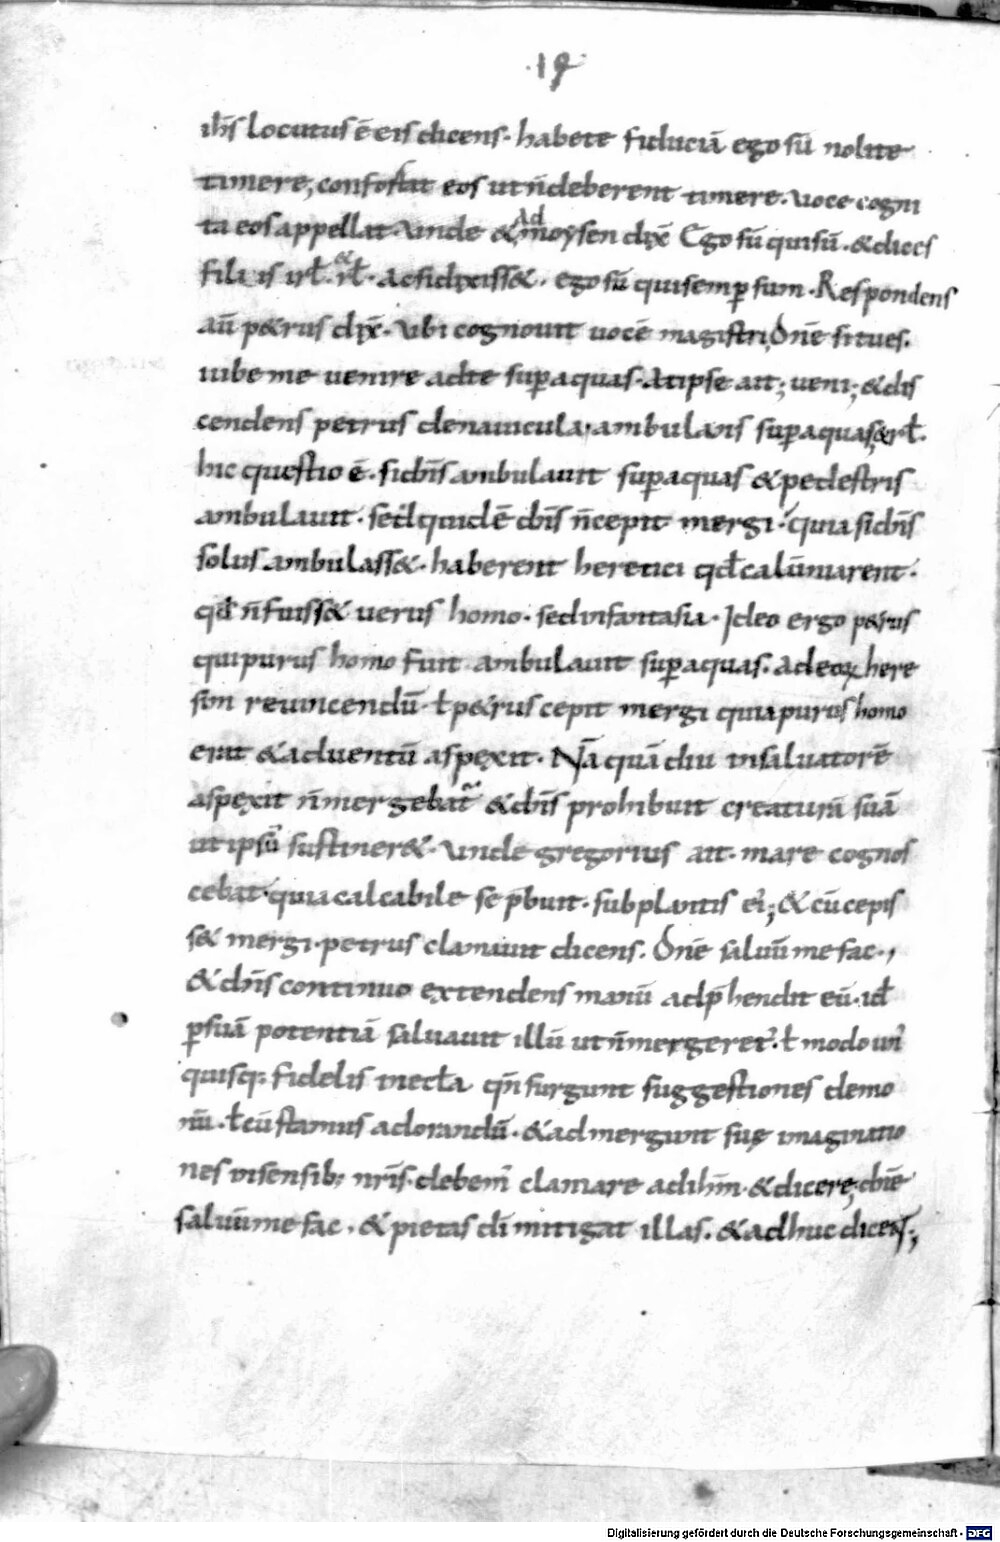 ·19·
ih̅s locutus e̅ eis dicens· habete fiducia̅ ego su̅ nolite
timere, confortat eos ut n̅ deberent timere· voce cogni
ta eos appellat Unde & Ad moysen dix̅ Ego su̅ qui su̅· & dices
filiis isrł· & rł· ac si dixiss&· ego su̅ qui semp̲ sum· Respondens
au̅ p&rus dix̅· Ubi cognovit voce̅ magistri, Dn̅e si tu es·
iube me venire ad te sup̲ aquas· At ipse ait; veni; & dis
cendens petrus de navicula· ambulans sup̲ aquas, & rł·
hic questio e̅· si dn̅s ambulavit sup̲ aquas & pedestris
ambulavit· sed quide̅ dn̅s n̅ cepit mergi· quia si dn̅s
solus ambulass&· haberent heretici qd̅ calu̅niarent·
qd̅ n̅ fuiss& verus homo· sed infantasia· Ideo ergo p&rus
qui purus homo fuit ambulavit sup̲ aquas· ad eoꝝ here
sin revincendu̅· ł p&rus cepit mergi quia purus homo
erat & adventu̅ aspexit· Na̅ qua̅ diu in salvatore̅
aspexit n̅ mergebat̃ & dn̅s prohibuit creatura̅ sua̅
ut ipsu̅ sustiner&· Unde gregorius ait· mare cognos
cebat· quia calcabile se p̅buit· sub plantis ei᾿; & cu̅ cepis
s& mergi· petrus clamavit dicens· Dn̅e salvu̅ me fac·,
& dn̅s continuo extendens manu̅ adp̅hendit eu̅· id̅
p̲ sua̅ potentia̅ salvavit illu̅ ut n̅ mergeret᾿· ł modo un᾿
quisq: fidelis in ecła qn̅ surgunt suggestiones demo
nu̅· ł cu̅ stamus adorandu̅· & admergunt suę imaginatio
nes in sensib; nr̅is· debem᾿ clamare ad ih̅m· & dicere; dn̅e
salvu̅ me fac· & pietas di̅ mitigat illas· & adhuc dicens·;
Digitalisierung gefördert durch die Deutsche Forschungsgemeinschaft - DFG